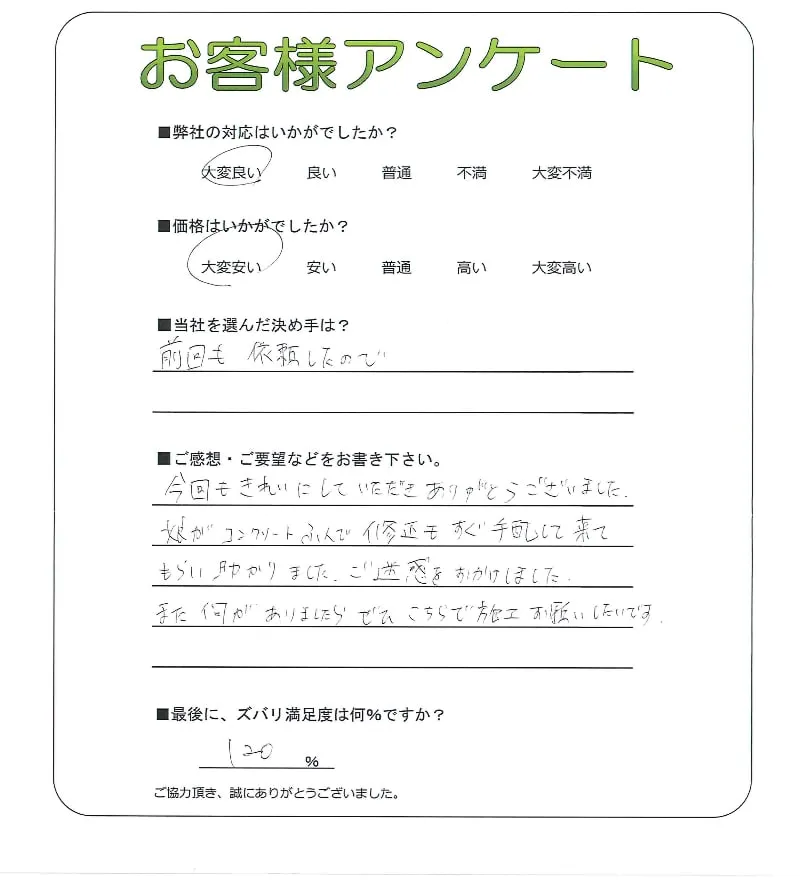 お客様アンケート
■弊社の対応はいかがでしたか？
大変良い 良い 普通 不満 大変不満
■価格はいかがでしたか？
大変安い 安い 普通 高い 大変高い
■当社を選んだ決め手は？
前回も依頼したので
■ご感想・ご要望などをお書き下さい。
今回もきれいにしていただきありがとうございました.
娘がコンクリートふんで修正もすぐ手配して来て
もらい助かりました.ご迷惑をおかけしました.
また何がありましたらぜひこちらで施工お願いしたいです.
■最後に、ズバリ満足度は何%ですか？
120 %
ご協力頂き、誠にありがとうございました。